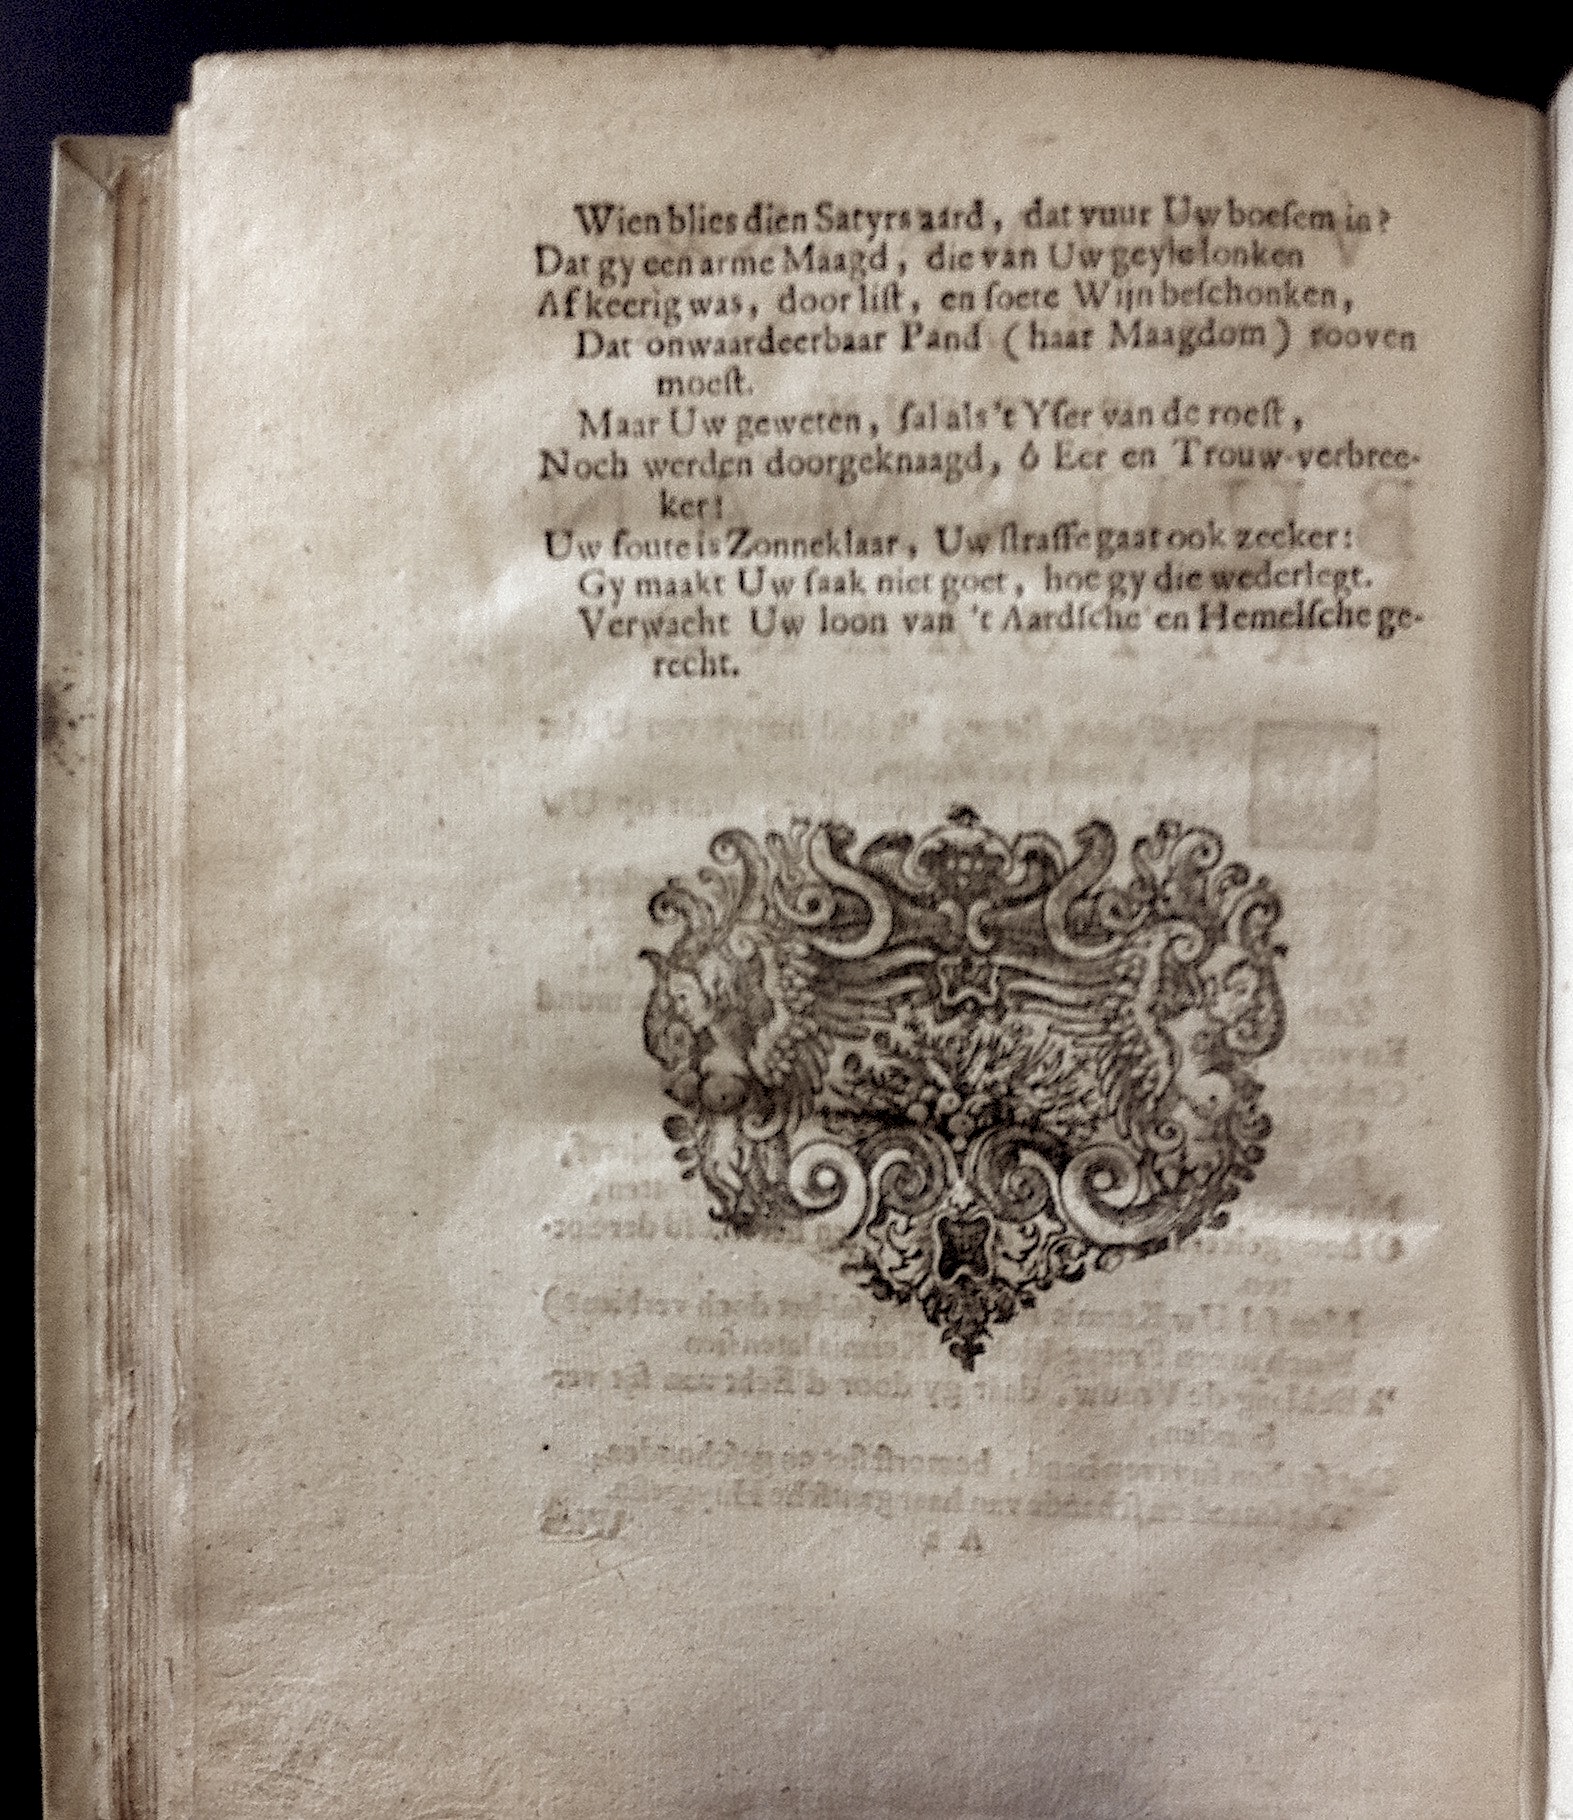 Wien blies dien Satyrs aard, dat vuur Uw boeſem in?
Dat gy een arme Maagd, die van Uw geyle lonken
Afkeerig was, door liſt, en ſoete Wijn beſchonken,
Dat onwaardeerbaar Pand (haar Maagdom) rooven
moeſt.
Maar Uw geweten, ſal als 't Yſer van de roeſt,
Noch werden doorgeknaagd, ô Eer en Trouw-verbree-
ker!
Uw foute is Zonneklaar, Uw ſtraffe gaat ook zeeker:
Gy maakt Uw ſaak niet goet, hoe gy die wederlegt.
Verwacht Uw loon van 't Aardſche en Hemelſche ge-
recht.